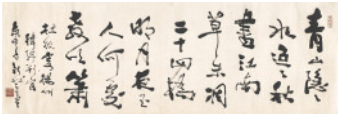 青山隱々
水迢々秋
盡江南
草未凋
二十四橋
明月夜玉
人何處
教吹簫
杜牧寄揚州
韓綽判官